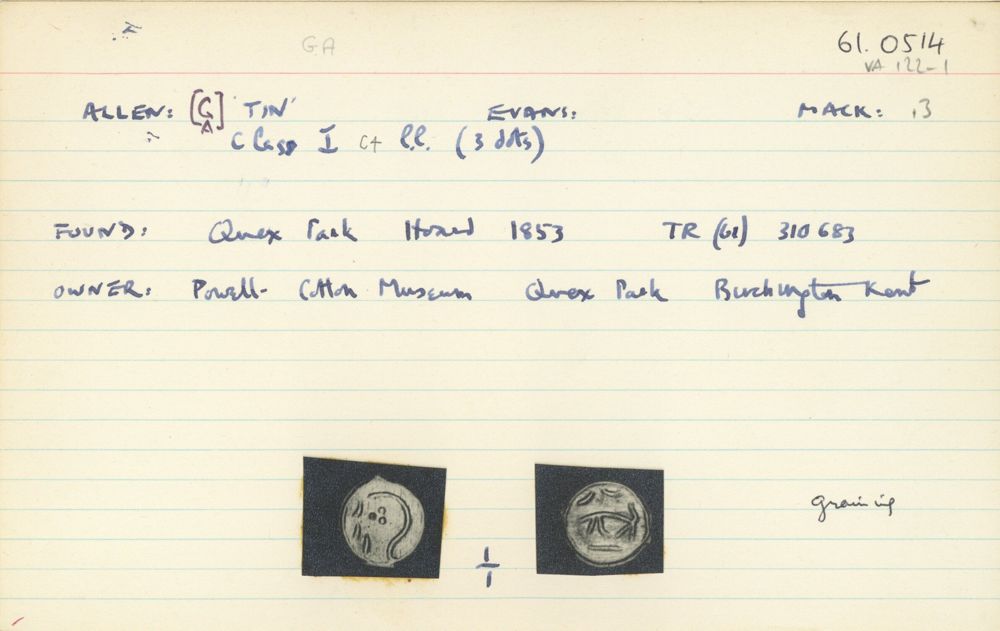 GA
61.0514
VA 122-1
ALLEN: [G] 'TIN' EVANS: MACK: 13
A
Class I cf l.l. (3 dots)
FOUND: Quex Park Hoard 1853 TR (61) 310683
OWNER: Powell-Cotton Museum Quex Park Birchington Kent
1/1
graining